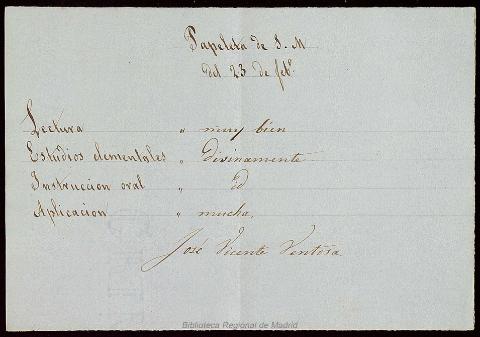 Papeleta de S. M
del 23 de feb.º
Lectura " muy bien
Estudios elementales " divinamente
Instruccion oral " id
Aplicacion " mucha.
José Vicente Ventosa
Biblioteca Regional de Madrid